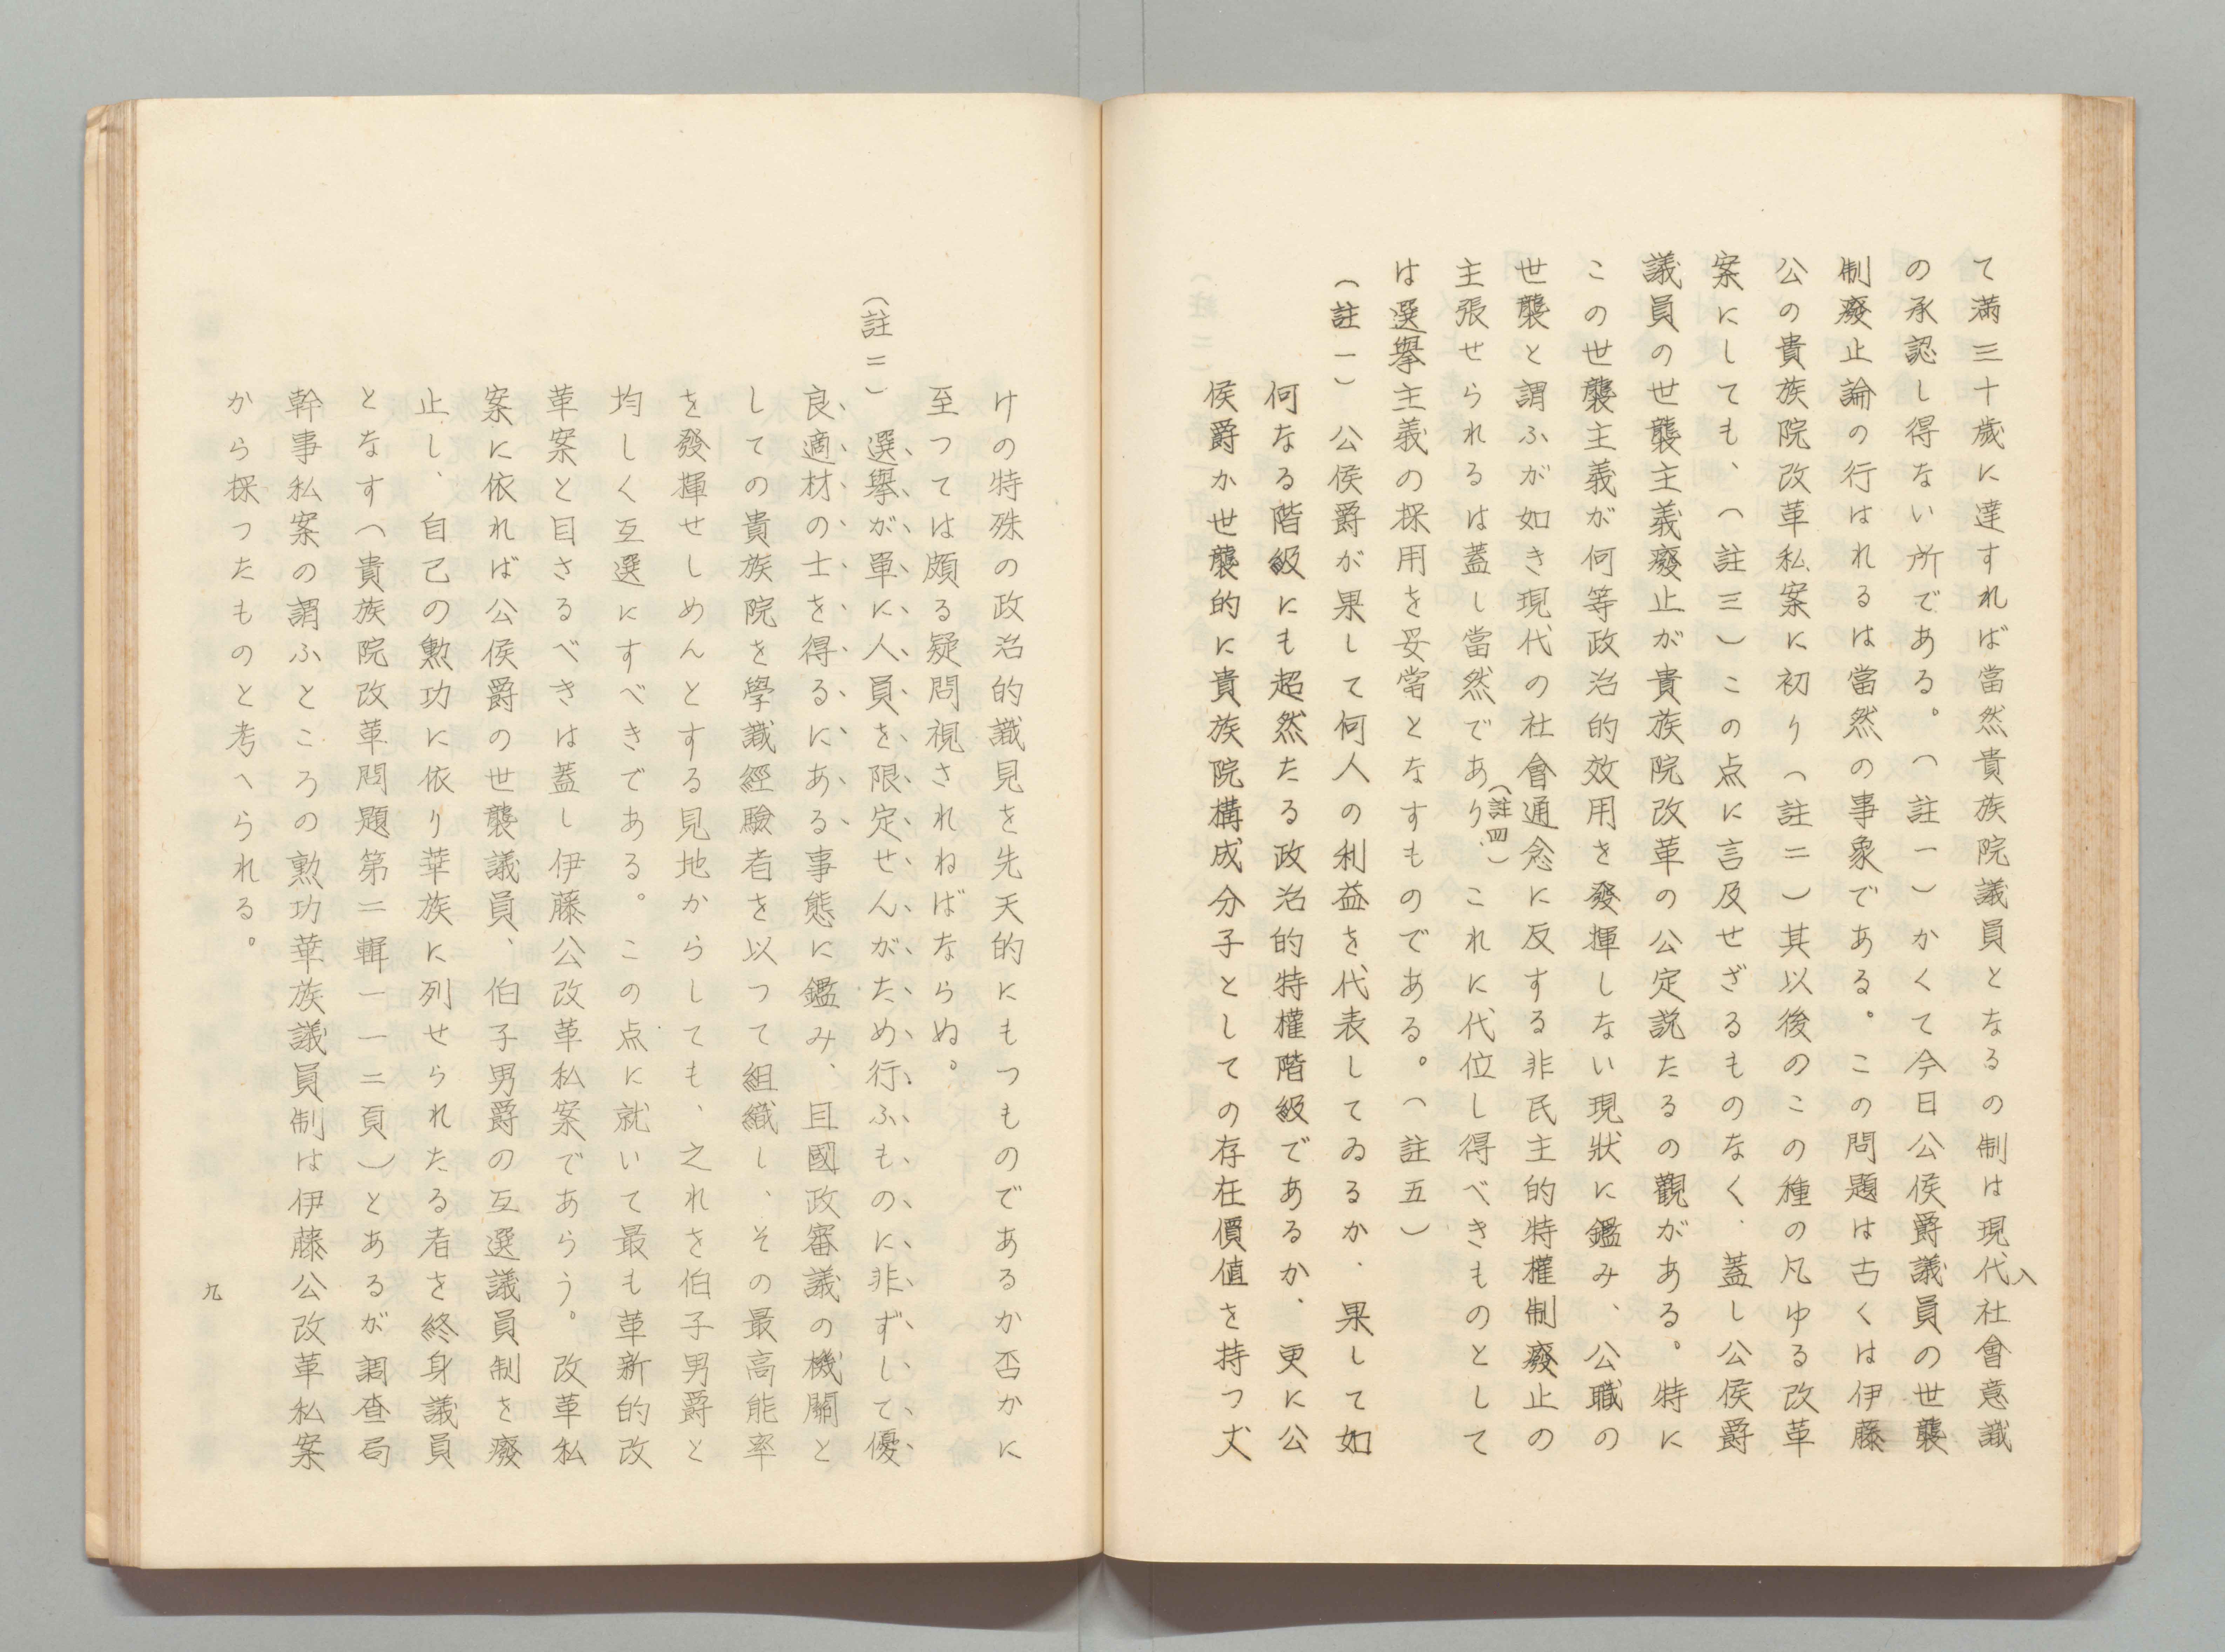 て満三十歳に達すれば當然貴族院議員となるの制は現代社會意識
の承認し得ない所である。（註一）かくて今日公侯爵議員の世襲
制廢止論の行はれるは當然の事象である。この問題は古くは伊藤
公の貴族院改革私案に初り（註二）其以後のこの種の凡ゆる改革
案にしても、（註三）この点に言及せざるものなく、蓋し公侯爵
議員の世襲主義廢止が貴族院改革の公定説たるの觀がある。特に
この世襲主義が何等政治的效用を發揮しない現狀に鑑み、公職の
世襲と謂ふが如き現代の社會通念に反する非民主的特權制廢止の
主張せられるは蓋し當然であり、（註四）これに代位し得べきものとして
は選擧主義の採用を妥當となすものである。（註五）
（註一）公侯爵が果して何人の利益を代表してゐるか、果して如
何なる階級にも超然たる政治的特權階級であるか、更に公
侯爵か世襲的に貴族院構成分子としての存在價値を持つ丈
八
けの特殊の政治的識見を先天的にもつものであるか否かに
至つては頗る疑問視されねばならぬ。
（註二）選擧が單に人員を限定せんがため行ふものに非ずして優
良適材の士を得るにある事態に鑑み、且國政審議の機關と
しての貴族院を學識經驗者を以つて組織し、その最高能率
を發揮せしめんとする見地からしても、之れを伯子男爵と
均しく互選にすべきである。この点に就いて最も革新的改
革案と目さるべきは蓋し伊藤公改革私案であらう。改革私
案に依れば公侯爵の世襲議員、伯子男爵の互選議員制を廢
止し、自己の勲功に依り華族に列せられたる者を終身議員
となす（貴族院改革問題第二輯一一二頁）とあるが調査局
幹事私案の謂ふところの勲功華族議員制は伊藤公改革私案
から採つたものと考へられる。
九